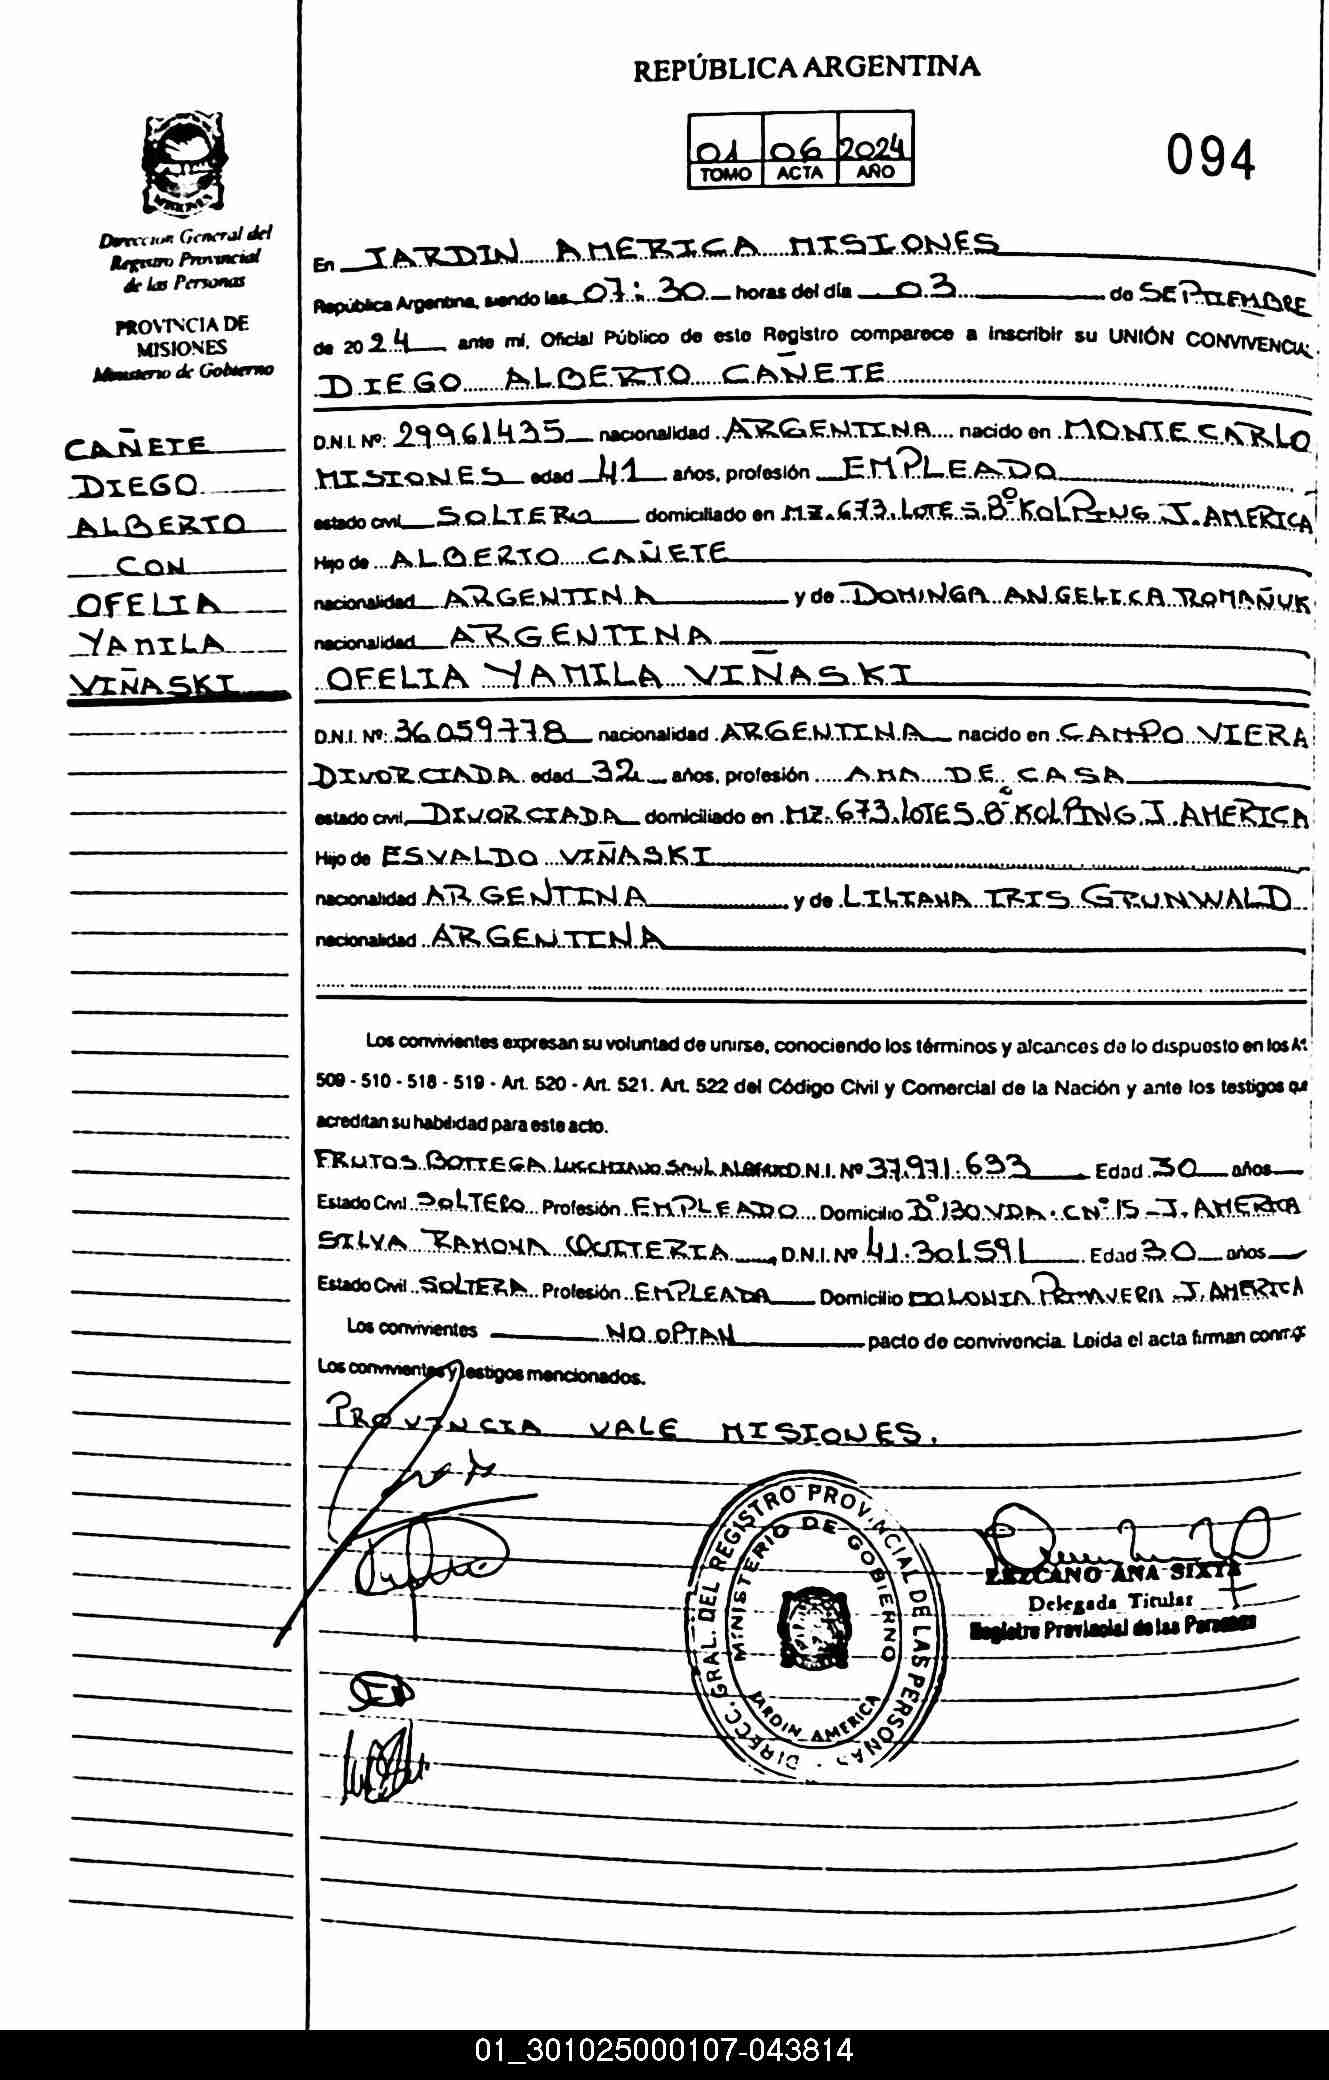 REPÚBLICA ARGENTINA
01 06 2024
TOMO ACTA AÑO
094
MISIONES
Dirección General del
Registro Provincial
de las Personas
PROVINCIA DE
MISIONES
Ministerio de Gobierno
CAÑETE
DIEGO
ALBERTO
CON
OFELIA
YAMILA
VIÑASKI
En JARDIN AMERICA MISIONES
República Argentina, siendo las 07:30 horas del día 03 de SEPTIEMBRE
de 2024 ante mí, Oficial Público de este Registro comparece a inscribir su UNIÓN CONVIVENCIAL
DIEGO ALBERTO CAÑETE
D.N.I. Nº: 29961435 nacionalidad ARGENTINA nacido en MONTECARLO
MISIONES edad 41 años, profesión EMPLEADO
estado civil SOLTERO domiciliado en MZ. 673. LOTE 5. Bº KOLPING J. AMERICA
Hijo de ALBERTO CAÑETE
nacionalidad ARGENTINA y de DOMINGA ANGELICA ROMAÑUK
nacionalidad ARGENTINA
OFELIA YAMILA VIÑASKI
D.N.I. Nº: 36.059.778 nacionalidad ARGENTINA nacido en CAMPO VIERA
DIVORCIADA edad 32 años, profesión AMA DE CASA
estado civil, DIVORCIADA domiciliado en MZ. 673. LOTE 5. Bº KOLPING. J. AMERICA
Hijo de ESVALDO VIÑASKI
nacionalidad ARGENTINA y de LILIANA IRIS GRUNWALD
nacionalidad ARGENTINA
Los convivientes expresan su voluntad de unirse, conociendo los términos y alcances de lo dispuesto en los At
509 - 510 - 518 - 519 - Art. 520 - Art. 521. Art. 522 del Código Civil y Comercial de la Nación y ante los testigos que
acreditan su habilidad para este acto.
FRUTOS BOTTEGA LUCCHIANO SAUL D.N.I. Nº 37.971.633 Edad 30 años
Estado Civil SOLTERO Profesión EMPLEADO Domicilio Bº 130 VDA. C Nº 15 - J. AMERICA
SILVA RAMONA QUITERIA, D.N.I. Nº 41.301.591 Edad 30 años
Estado Civil SOLTERA Profesión EMPLEADA Domicilio COLONIA PRIMAVERA J. AMERICA
Los convivientes NO OPTAN pacto de convivencia. Leída el acta firman
Los convivientes y testigos mencionados.
PROVINCIA VALE MISIONES.
DIRECC. GRAL. DEL REGISTRO PROVINCIAL DE LAS PERSONAS
MINISTERIO DE GOBIERNO
JARDIN AMERICA
LEZCANO ANA SIXTA
Delegada Titular
Registro Provincial de las Personas
01_301025000107-043814